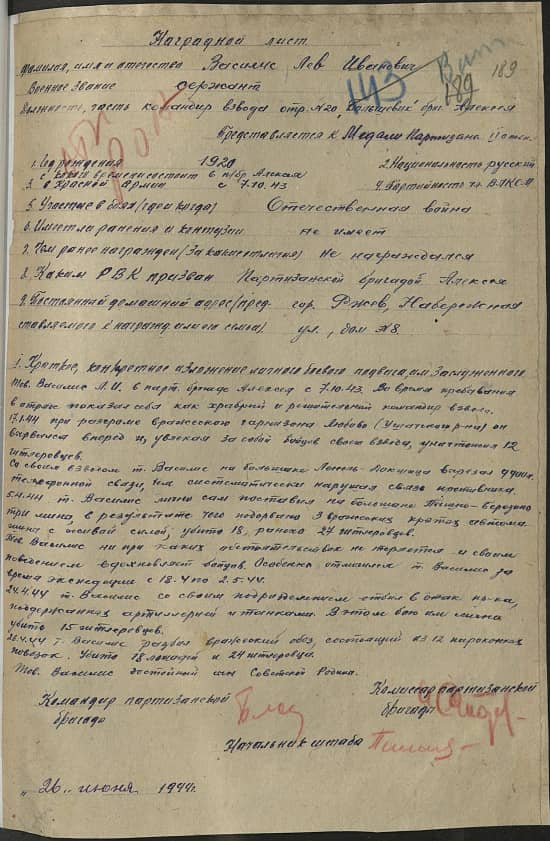 Наградной лист
183
189
143
Фамилия, имя и отчество Василис Лев Иванович
Военное звание сержант
Должность, часть командир взвода отр. №20, "Большевик" бриг. Алексея
Представляется к Медали Партизана II степ.
1. Год рождения 1920
2. Национальность русский
с какого времени состоит в п/бр Алексея
3. в Красной Армии с 7.10.43
4. Партийность чл. ВЛКСМ
5. Участие в боях (где и когда) Отечественная война
6. Имеет ли ранения и контузии не имеет
7. Чем ранее награжден (за какие отличия) Не награждался
8. Каким РВК призван Партизанской бригадой Алексея
9. Постоянный домашний адрес (пред гор. Ржев, Набережная
ставляемого к награжд. и его семьи) ул., дом №8
I. Краткое, конкретное изложение личного боевого подвига, или заслуженного
Тов. Василис Л.И. в парт. бригаде Алексея с 7.10.43. Во время пребывания
в отряде показал себя как храбрый и решительный командир взвода.
17.1.44 при разгроме вражеского гарнизона (Ушачского р-на) он
вырвался вперед и, увлекая за собой бойцов своего взвода, уничтожил 12
гитлеровцев.
Со своим взводом т. Василис на большаке Лепель-Лукомль вырезал
телефонной связи, чем систематически нарушал связь противника.
5.4.44 т. Василис лично сам поставил на большаке
три мины, в результате чего подорвано 3 вражеских автома-
шины с живой силой, убито 18, ранено 27 гитлеровцев.
Тов. Василис ни при каких обстоятельствах не теряется и своим
поведением вдохновляет бойцов. Особенно отличился т. Василис за
время экспедиции с 18.4 по 2.5.44.
24.4.44 т. Василис со своим подразделением отбил 8 атак пр-ка,
поддержанных артиллерией и танками. В этом бою им лично
убито 15 гитлеровцев.
28.4.44 т. Василис разбил вражеский обоз, состоящий из 12 пароконных
повозок. Убито 18 лошадей и 24 гитлеровца.
Тов. Василис достойный сын Советской Родины.
Командир партизанской
бригады
Комиссар партизанской
бригады
Начальник штаба
"26" июня 1944г.